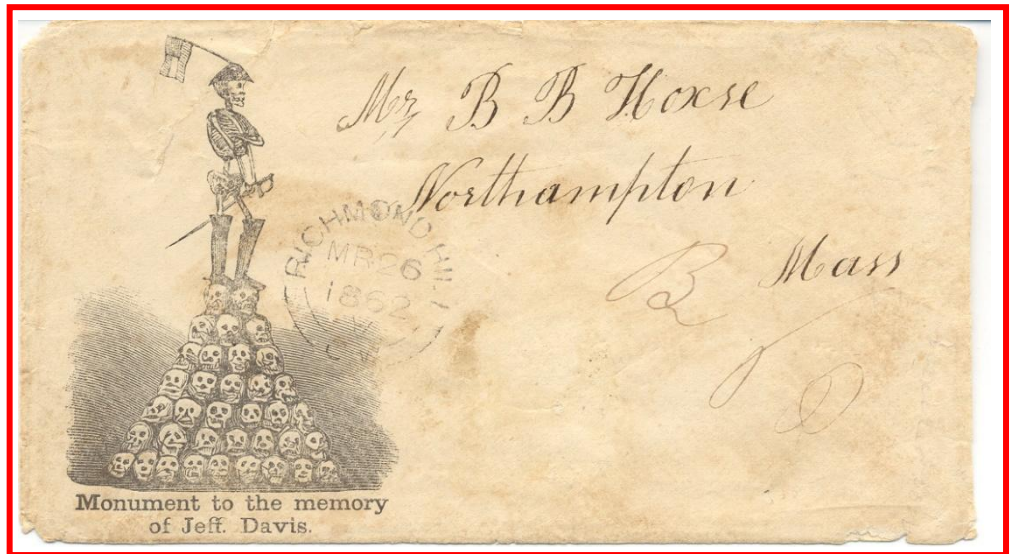 Mr B B Hoxse
Northampton
Mass
RICHMOND HILL
MR 26
1862
Monument to the memory
of Jeff. Davis.